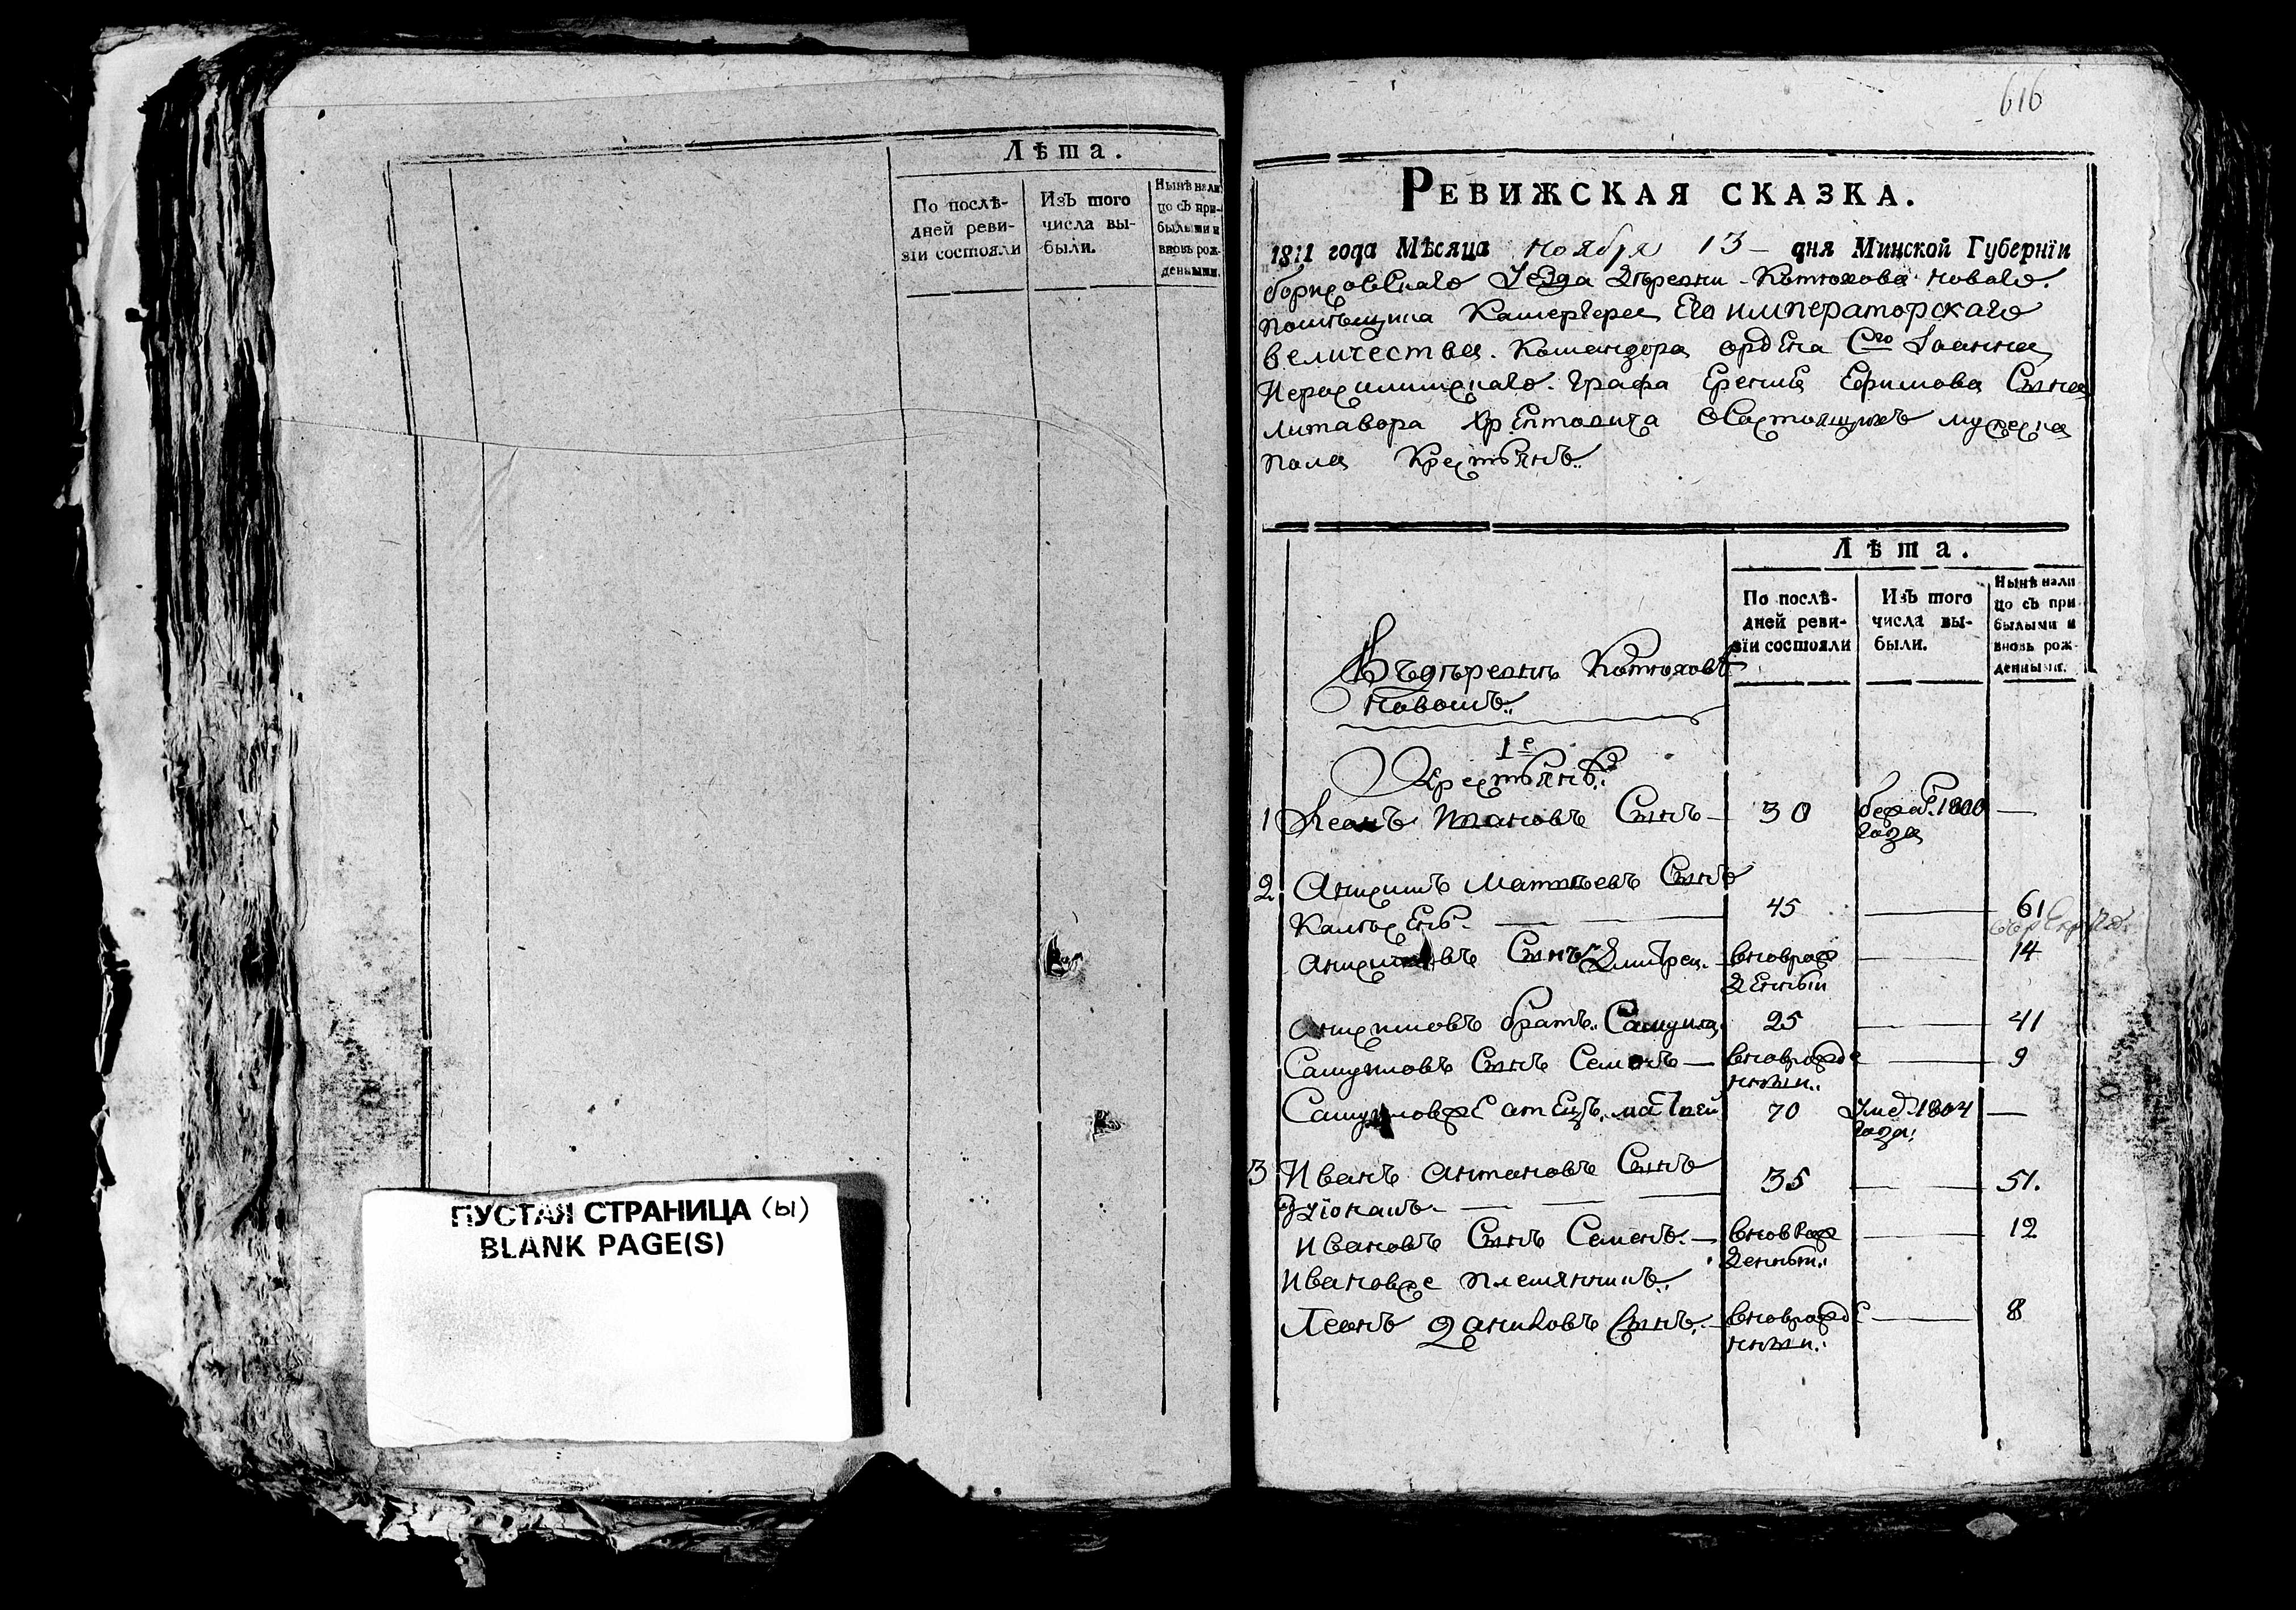 Лѣта.
По послѣ-
дней реви-
зіи состояли
Изъ того
числа вы-
были.
Нынѣ нали
цо съ при-
былыми и
вновь рож-
денными.
ПУСТАЯ СТРАНИЦА (ы)
BLANK PAGE(S)
616
РЕВИЖСКАЯ СКАЗКА.
1811 года Мѣсяца ноября 13 дня Минской Губерніи
борисовскаго уезда Дѣревни новаго.
помѣщика Камергера Его императорскаго
величества. Командора ордена Сго Іоанна
Иерусалимскаго. графа Ефимова Сына
литавора Хрептовича мужеска
пола Крестьянъ.
Лѣта.
По послѣ-
дней реви-
зіи состояли
Изъ того
числа вы-
были.
Нынѣ нали
цо съ при
былыми и
вновь рож-
денными.
Въ дѣревнѣ
новомъ.
1е
Крестьянъ.
1 Леонъ Сынъ 30 1800 —
года
2 Матвѣевъ Сынъ
45 — 61
Сынъ Дмитрец. вноврож — 14
денный
братъ. 25 — 41
Сынъ Семенъ — вноврожде — 9
нный.
отецъ. матвей 70 Умер. 1804 —
года.
3 Иванъ Антановъ Сынъ 35 — 51.
Ивановъ Сынъ Семенъ. — вноврож — 12
денный.
Ивановже племянникъ.
Леонъ Даниловъ Сынъ. вноврожде — 8
нный.